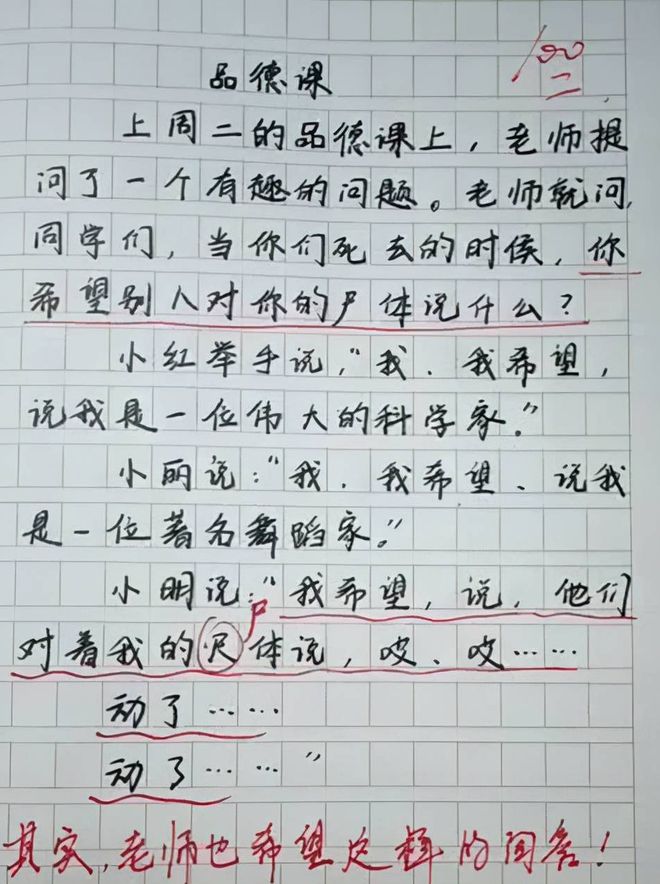 100
品德课
上周二的品德课上，老师提
问了一个有趣的问题。老师就问,
同学们，当你们死去的时候，你
希望别人对你的尸体说什么？
小红举手说，“我．我希望，
说我是一位伟大的科学家。”
小丽说：“我．我希望、说我
是一位著名舞蹈家。”
小明说：“我希望，说，他们
尸
对着我的尺体说，哎、哎……
动了……
动了……”
其实,老师也希望这样的回答！